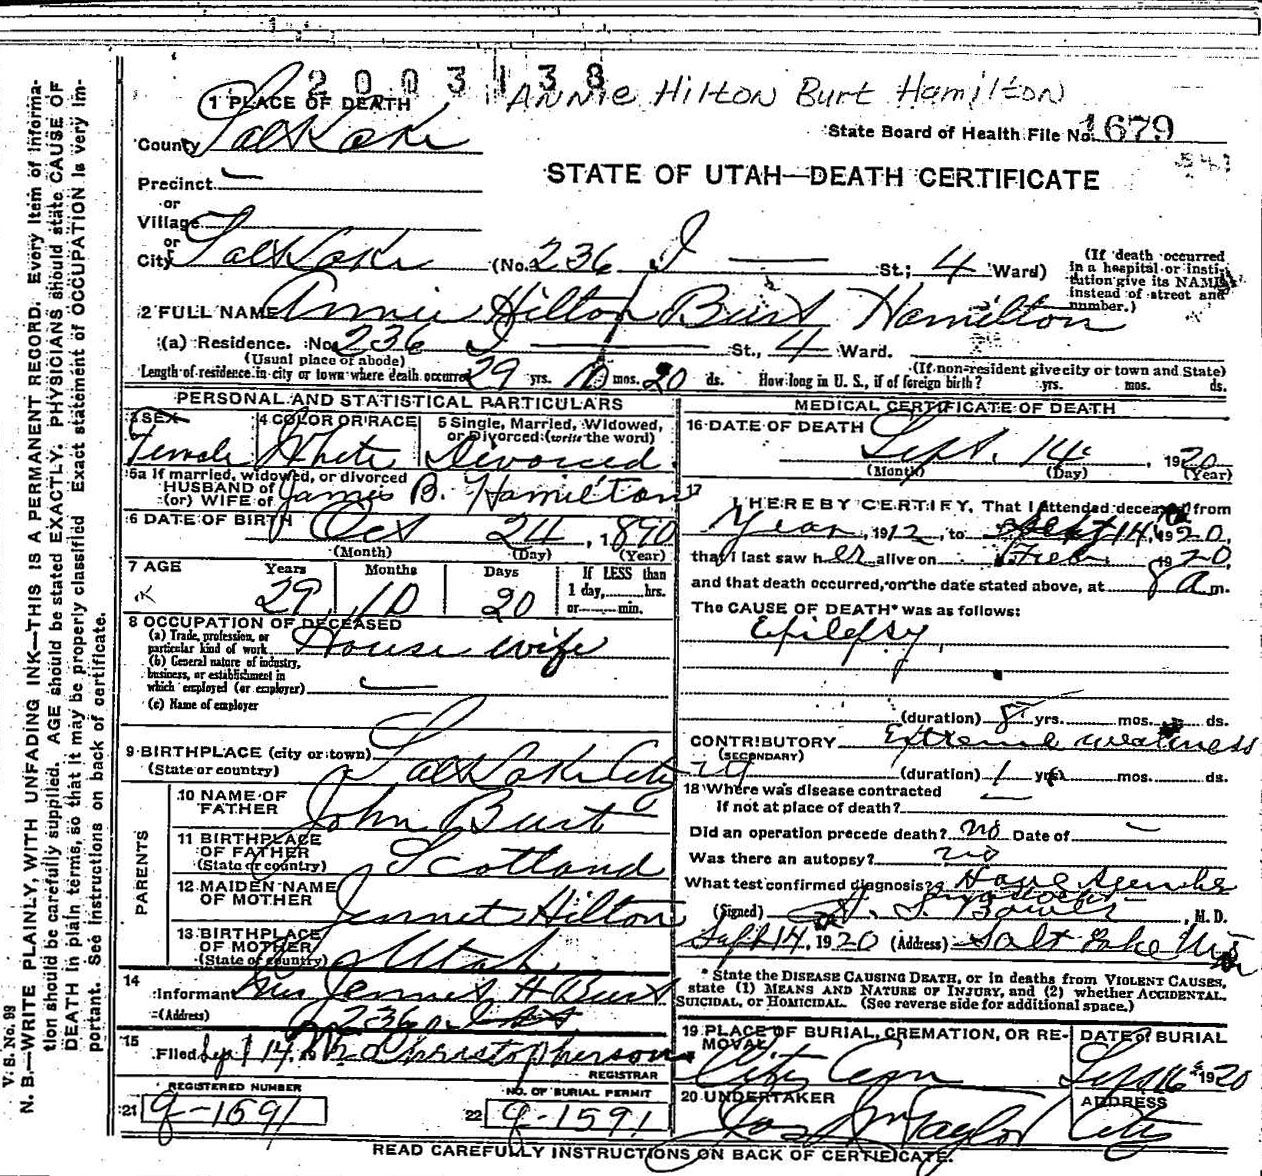 2003138
Annie Hilton Burt Hamilton
1 PLACE OF DEATH
State Board of Health File No. 1679
County Salt Lake
STATE OF UTAH—DEATH CERTIFICATE
Precinct
or
Village
or
City Salt Lake (No. 236 I St.; 4 Ward)
(If death occurred in a hospital or institution give its NAME instead of street and number.)
2 FULL NAME Annie Hilton Burt Hamilton
(a) Residence. No. 236 I St., 4 Ward.
(Usual place of abode) (If non-resident give city or town and State)
Length of residence in city or town where death occurred 29 yrs. 10 mos. 20 ds. How long in U. S., if of foreign birth? yrs. mos. ds.
PERSONAL AND STATISTICAL PARTICULARS
3 SEX Female
4 COLOR OR RACE White
5 Single, Married, Widowed, or Divorced (write the word) Divorced.
5a If married, widowed, or divorced
HUSBAND of
(or) WIFE of James B. Hamilton
6 DATE OF BIRTH Oct 24, 1890
(Month) (Day) (Year)
7 AGE Years Months Days If LESS than
29 10 20 1 day, hrs.
or min.
8 OCCUPATION OF DECEASED
(a) Trade, profession, or
particular kind of work House wife
(b) General nature of industry,
business, or establishment in
which employed (or employer)
(c) Name of employer
9 BIRTHPLACE (city or town) Salt Lake City
(State or country)
PARENTS
10 NAME OF FATHER John Burt
11 BIRTHPLACE OF FATHER (State or country) Scotland
12 MAIDEN NAME OF MOTHER Jennet Hilton
13 BIRTHPLACE OF MOTHER (State or country) Utah
14
Informant Mrs Jennet H Burt
(Address) 236 I St.
15
Filed Sept 14, 19 Christopherson
REGISTRAR
REGISTERED NUMBER
21 9-1591
NO. OF BURIAL PERMIT
22 9-1591
MEDICAL CERTIFICATE OF DEATH
16 DATE OF DEATH Sept. 14 1920
(Month) (Day) (Year)
17
I HEREBY CERTIFY, That I attended deceased from
Year, 1912, to Sept 14, 1920,
that I last saw her alive on Feb 1920,
and that death occurred, on the date stated above, at 8 a m.
The CAUSE OF DEATH* was as follows:
Epilepsy
(duration) 8 yrs. mos. ds.
CONTRIBUTORY Extreme weakness
(SECONDARY)
(duration) 1 yrs. mos. ds.
18 Where was disease contracted
If not at place of death?
Did an operation precede death? no Date of
Was there an autopsy? no
What test confirmed diagnosis?
(Signed) , M. D.
Sept 14, 1920 (Address) Salt Lake
* State the DISEASE CAUSING DEATH, or in deaths from VIOLENT CAUSES,
state (1) MEANS AND NATURE OF INJURY, and (2) whether ACCIDENTAL,
SUICIDAL, or HOMICIDAL. (See reverse side for additional space.)
19 PLACE OF BURIAL, CREMATION, OR REMOVAL City Cem
DATE of BURIAL Sept 16 1920
20 UNDERTAKER Jos Wm Taylor
ADDRESS City
READ CAREFULLY INSTRUCTIONS ON BACK OF CERTIFICATE.
V. S. No. 99
N. B.—WRITE PLAINLY, WITH UNFADING INK—THIS IS A PERMANENT RECORD. Every item of information should be carefully supplied. AGE should be stated EXACTLY. PHYSICIANS should state CAUSE OF DEATH in plain terms, so that it may be properly classified. Exact statement of OCCUPATION is very important. See instructions on back of certificate.